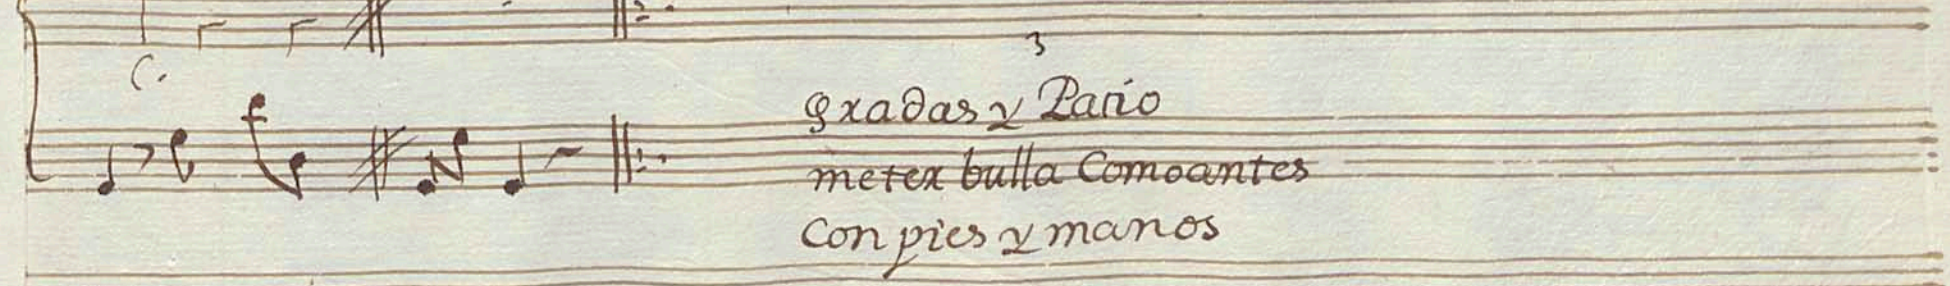 C.
3
gradas y Patio
meter bulla Comoantes
Con pies y manos